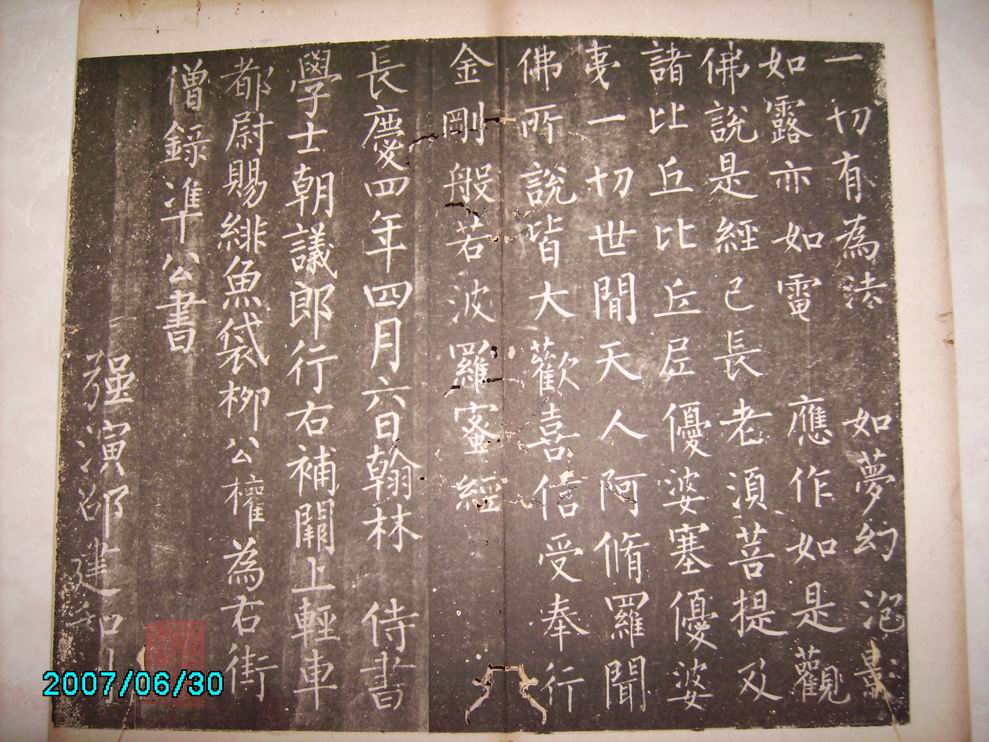 一切有為法 如夢幻泡影
如露亦如電 應作如是觀
佛說是經已長老須菩提及
諸比丘比丘尼優婆塞優婆
夷一切世間天人阿脩羅聞
佛所說皆大歡喜信受奉行
金剛般若波羅蜜經
長慶四年四月六日翰林 侍書
學士朝議郎行右補闕上輕車
都尉賜緋魚袋柳公權為右街
僧錄準公書
強演邵建和刻
2007/06/30